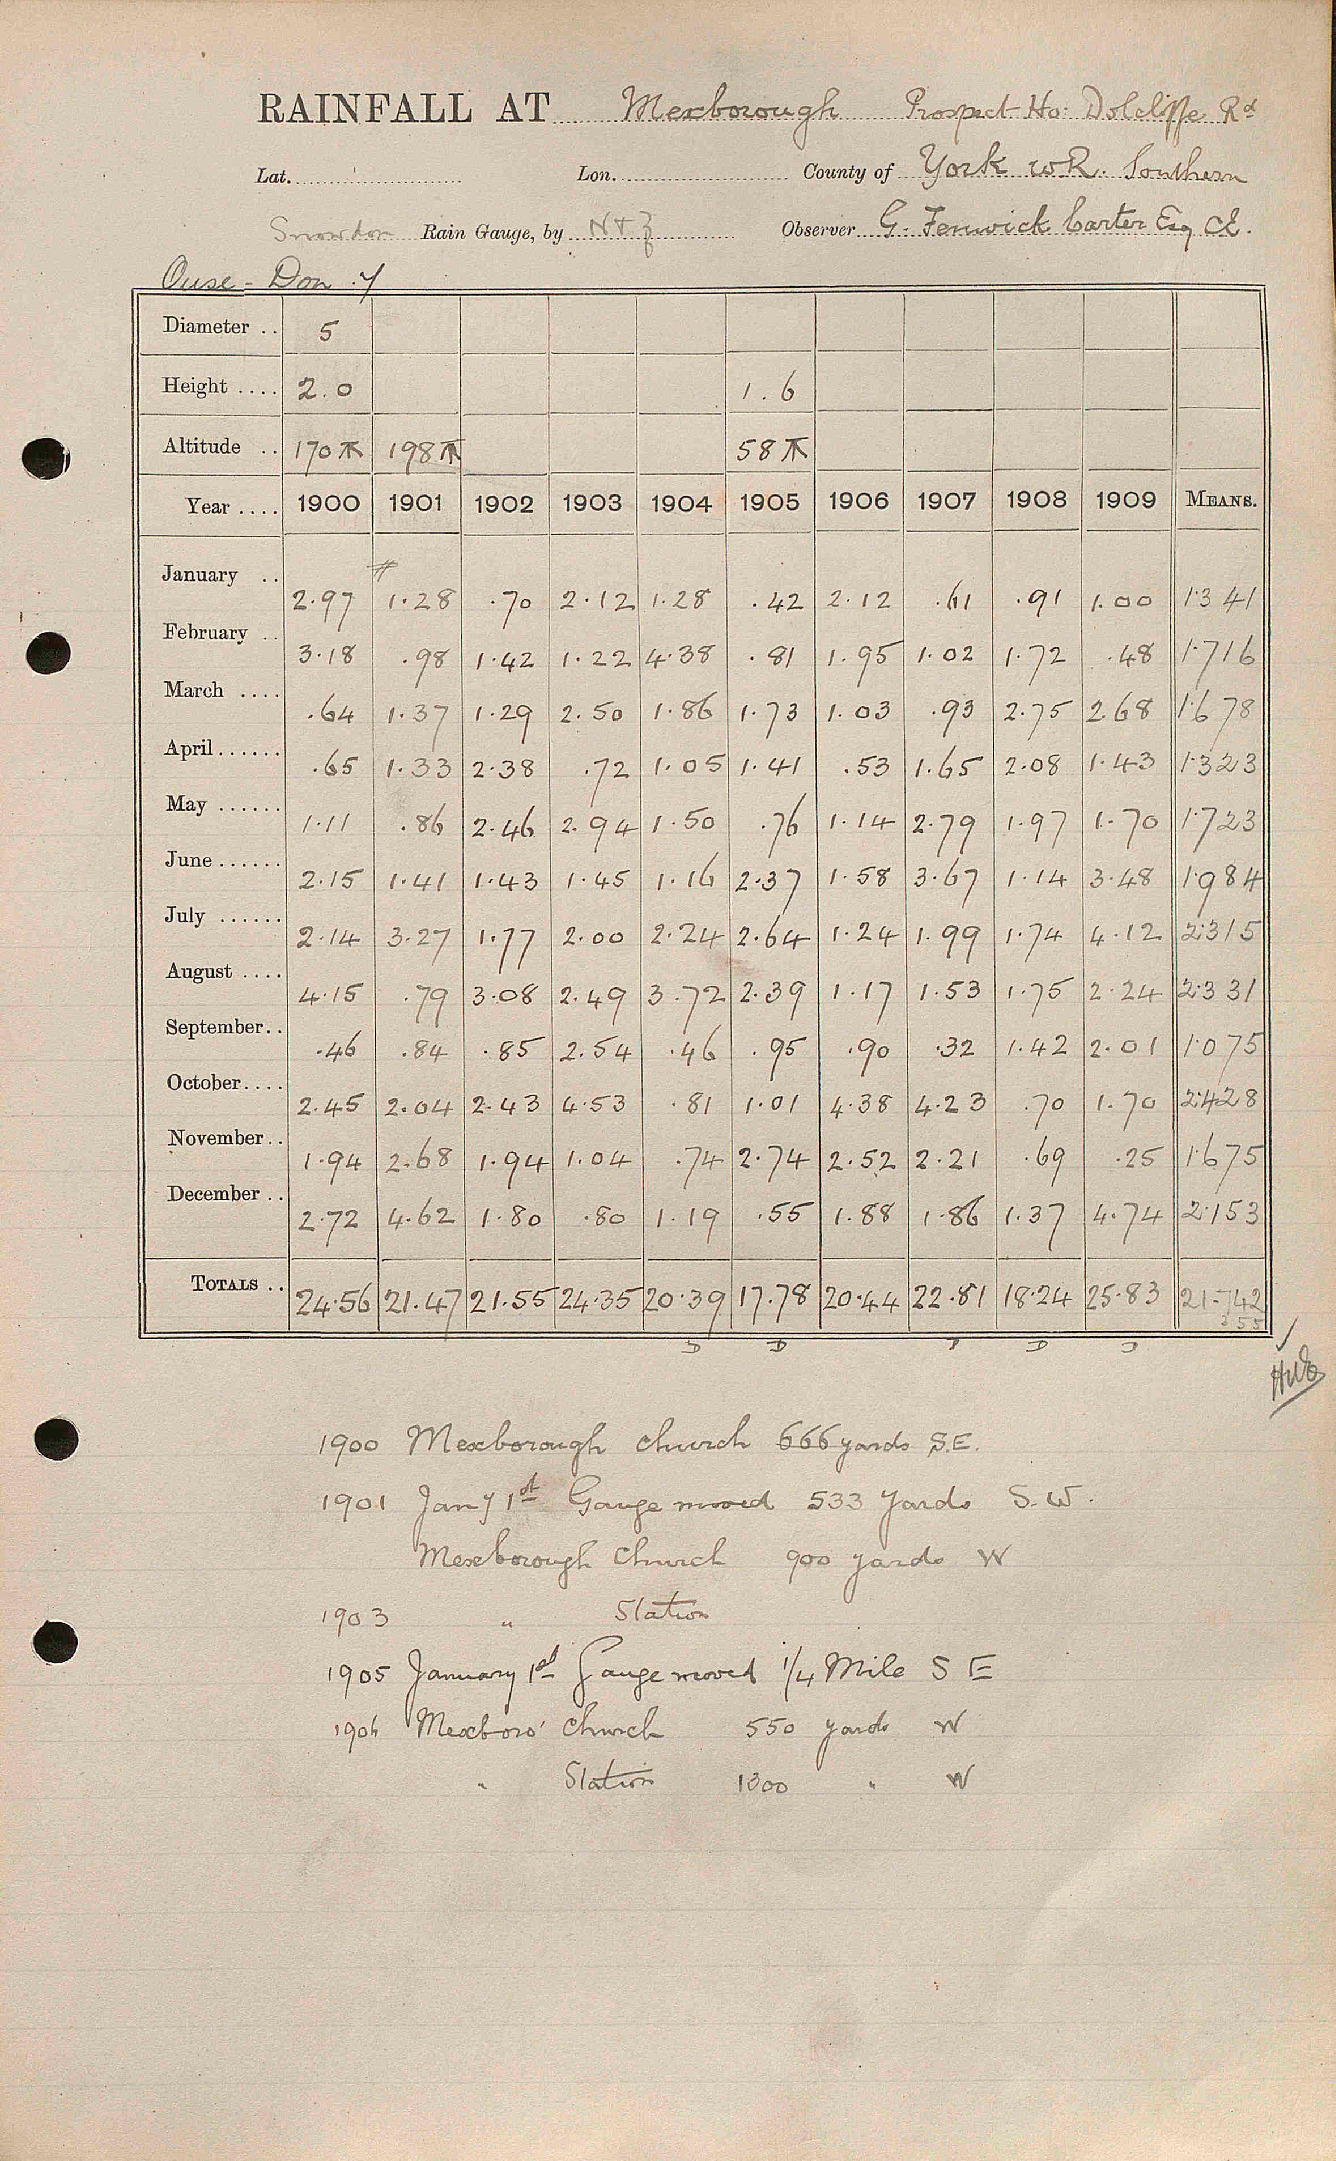 RAINFALL AT Mexborough Prospect Ho: Dolcliffe Rd
Lat. Lon. County of York W.R. Southern
Snowdon Rain Gauge, by N+Z Observer G. Fenwick Carter Esq CE.
Ouse - Don .7
Diameter .. 5
Height .... 2.0 1.6
Altitude .. 170 198 58
Year .... 1900 1901 1902 1903 1904 1905 1906 1907 1908 1909 MEANS.
January .. 2.97 1.28 .70 2.12 1.28 .42 2.12 .61 .91 1.00 1.341
February .. 3.18 .98 1.42 1.22 4.38 .81 1.95 1.02 1.72 .48 1.716
March .... .64 1.37 1.29 2.50 1.86 1.73 1.03 .93 2.75 2.68 1.678
April ...... .65 1.33 2.38 .72 1.05 1.41 .53 1.65 2.08 1.43 1.323
May ...... 1.11 .86 2.46 2.94 1.50 .76 1.14 2.79 1.97 1.70 1.723
June ...... 2.15 1.41 1.43 1.45 1.16 2.37 1.58 3.67 1.14 3.48 1.984
July ...... 2.14 3.27 1.77 2.00 2.24 2.64 1.24 1.99 1.74 4.12 2.315
August .... 4.15 .79 3.08 2.49 3.72 2.39 1.17 1.53 1.75 2.24 2.331
September .. .46 .84 .85 2.54 .46 .95 .90 .32 1.42 2.01 1.075
October .... 2.45 2.04 2.43 4.53 .81 1.01 4.38 4.23 .70 1.70 2.428
November .. 1.94 2.68 1.94 1.04 .74 2.74 2.52 2.21 .69 .25 1.675
December .. 2.72 4.62 1.80 .80 1.19 .55 1.88 1.86 1.37 4.74 2.153
TOTALS .. 24.56 21.47 21.55 24.35 20.39 17.78 20.44 22.81 18.24 25.83 21.742
D D D
1900 Mexborough church 666 yards S.E.
1901 Jany 1st Gauge moved 533 yards S.W.
Mexborough Church 900 yards W
1903 " Station
1905 January 1st Gauge moved 1/4 Mile S E
1906 Mexboro' Church 550 yards W
" Station 1300 " W